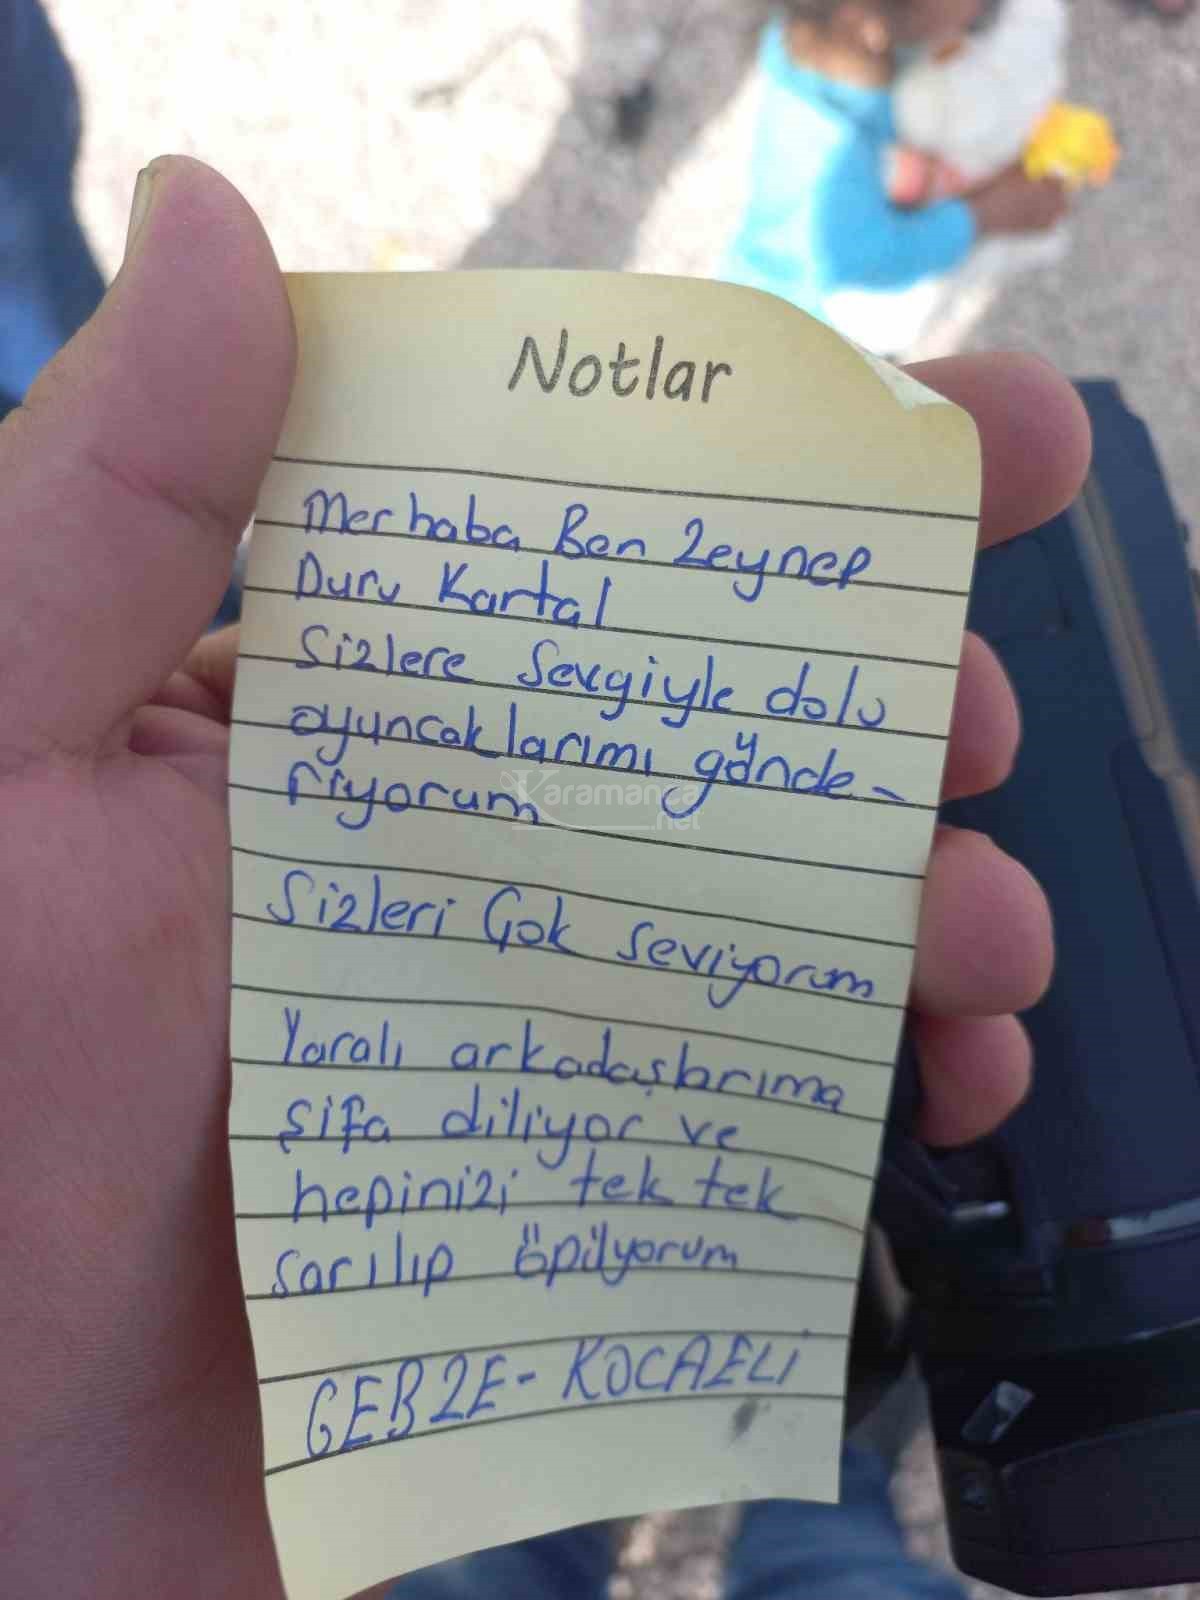 Notlar
Merhaba Ben Zeynep
Duru Kartal
Sizlere Sevgiyle dolu
oyuncaklarımı günde-
riyorum
Karamanca
.net
Sizleri Çok seviyorum
Yaralı arkadaşlarıma
şifa diliyor ve
hepinizi tek tek
sarılıp öpüyorum
GEBZE-KOCAELİ